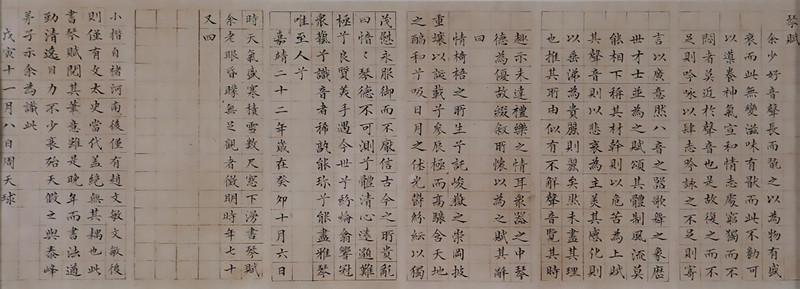 琴賦
余少好音聲長而翫之以為物有盛
衰而此無變滋味有猒而此不勌可
以導養神氣宣和情志處窮獨而不
悶者莫近於聲音也是故復之而不
足則吟咏以肆志吟詠之不足則寄
言以廣意然八音之器歌舞之象歷
世才士並為之賦頌其體制風流莫
能相下稱其材幹則以危苦為上賦
其聲音則以悲哀為主美其感化則
以垂涕為貴麗則麗矣然未盡其理
也推其所由似有不解聲音覽其時
趣亦未達禮樂之情耳衆器之中琴
德為優故綴叙所懷以為之賦其辭
曰
椅梧之所生兮託峻嶽之崇岡披
重壤以誕載兮參辰極而高驤含天地
之醕和兮吸日月之休光鬱紛紜以獨
茂慰永服御而不厭信古今之所貴亂
曰愔愔琴德不可測兮體清心遠邈難
極兮良質美手遇今世兮紛綸翕響冠
衆藝兮識音者稀孰能珍兮能盡雅琴
唯至人兮
嘉靖二十二年歲在癸卯十月六日
時天氣盛寒積雪數尺窓下漫書琴賦
余老眼昏矇無足觀者徵明時年七十
又四
小楷自褚河南後僅有趙文敏文敏後
則僅有文太史當代蓋絕無其耦也此
書琴賦閱其筆意雖是晚年而書法遒
勁清逸目力不少衰殆天假之與泰峰
尊予示余為識此
戊寅十一月八日周天球